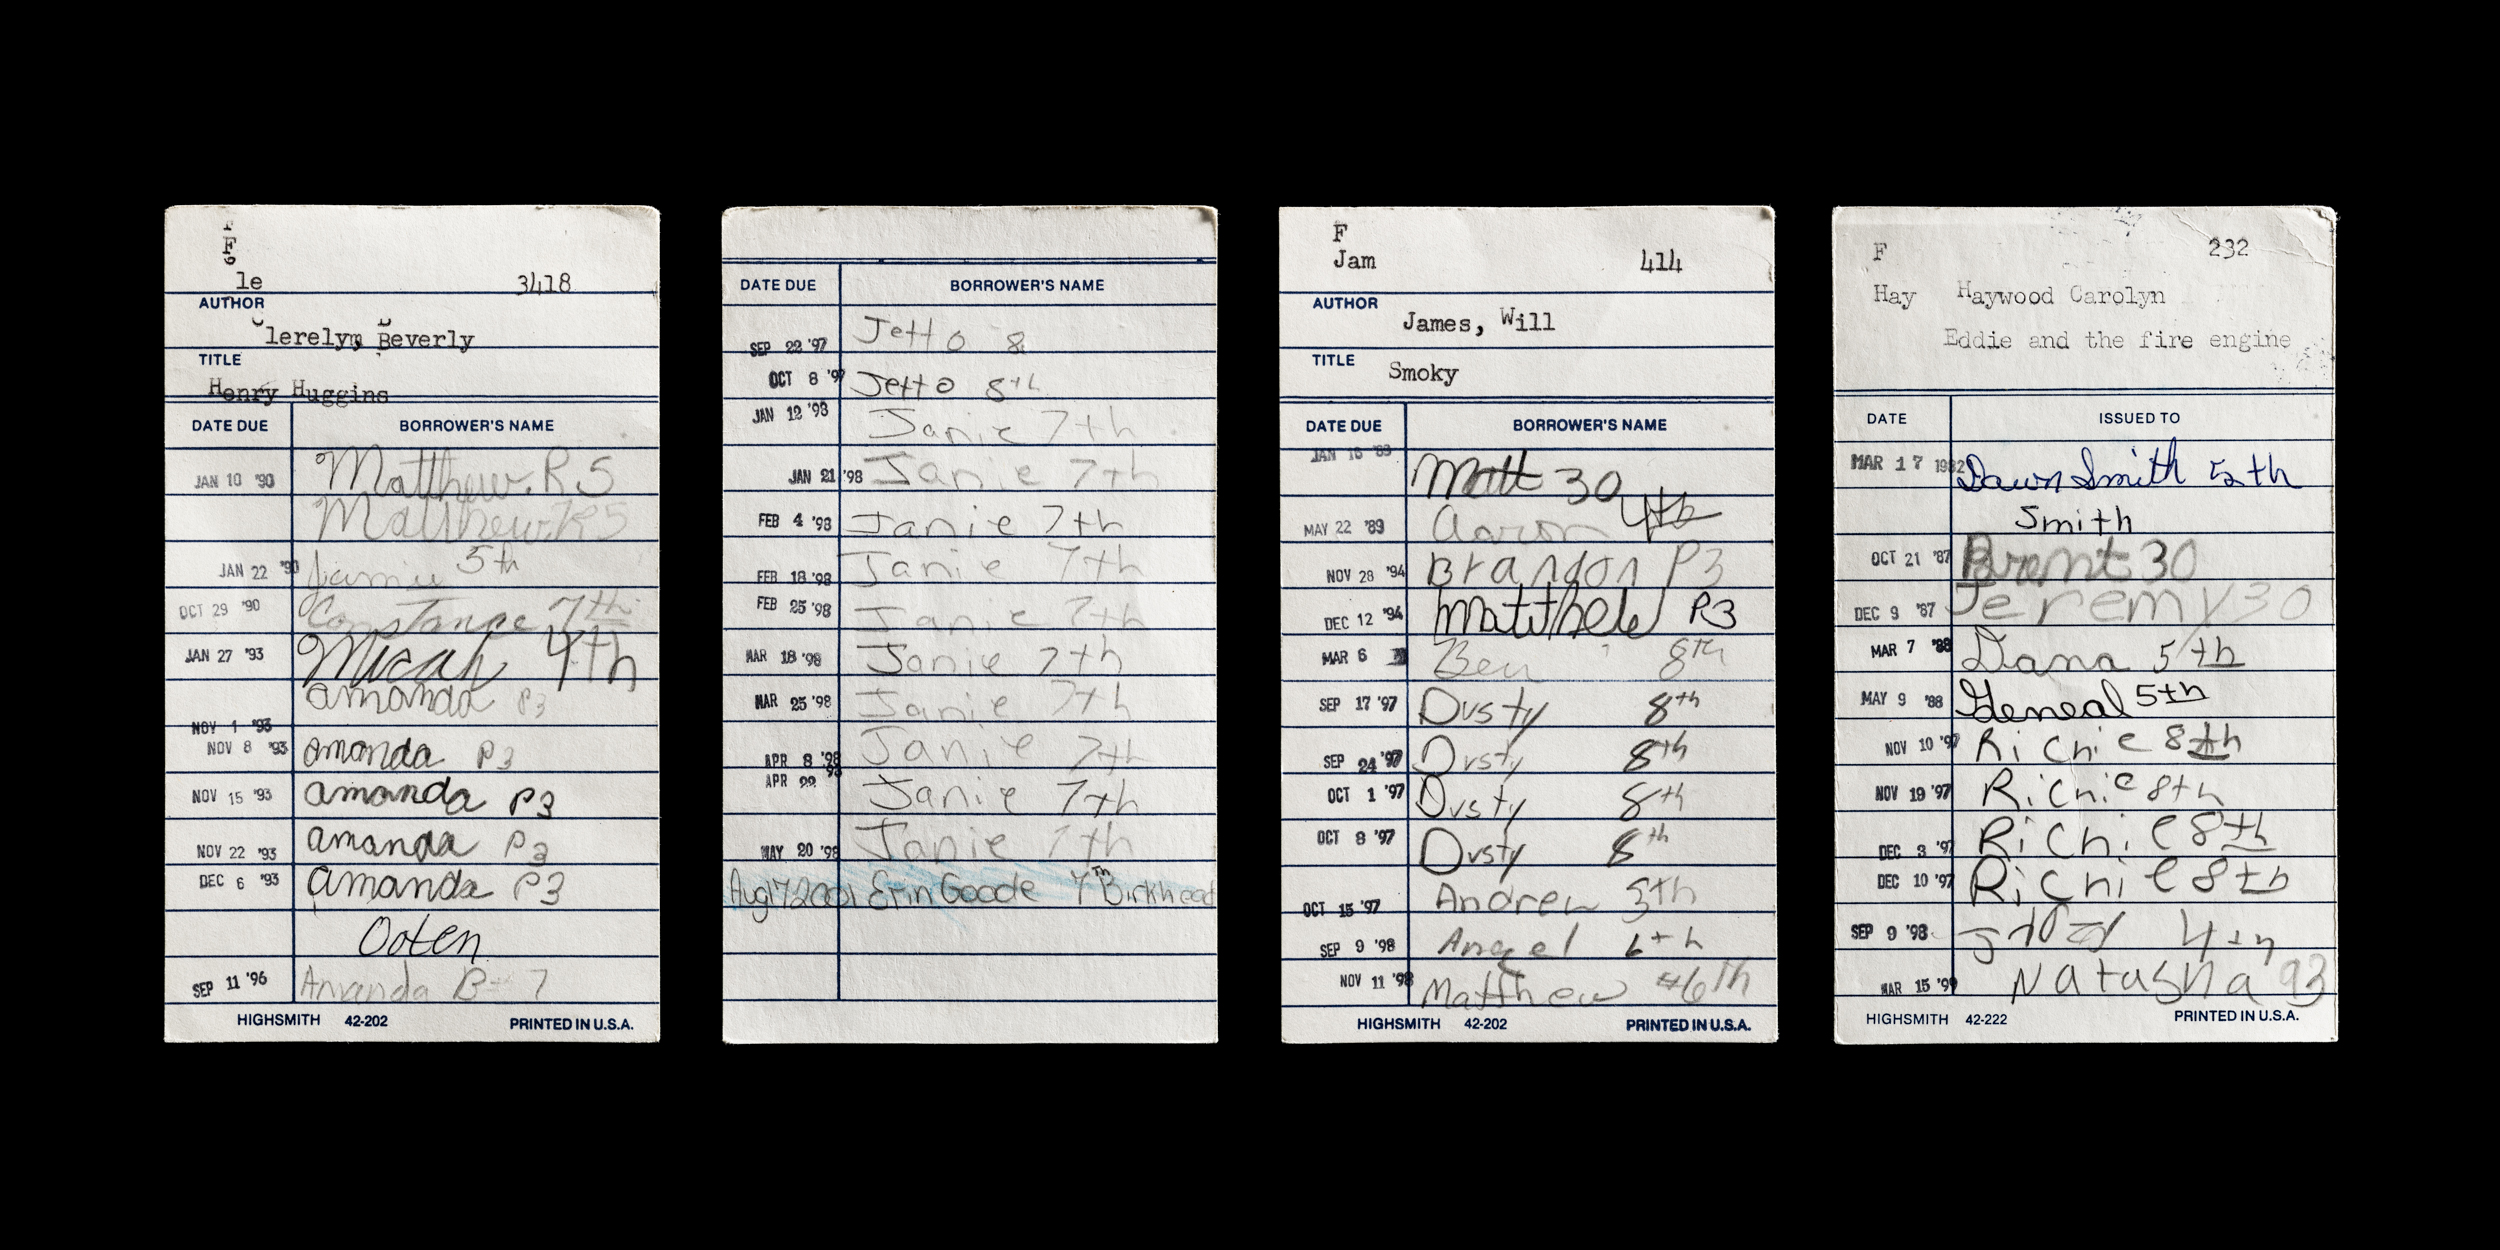 F
F
le 3418
AUTHOR
lerelym Beverly
TITLE
Henry Huggins
DATE DUE BORROWER'S NAME
JAN 10 '90 Matthew. R5
Matthew R5
JAN 22 '90 Jamie 5th
OCT 29 '90 Constance 7th
JAN 27 '93 Micah 4th
NOV 1 '93 amanda P3
NOV 8 '93 amanda P3
NOV 15 '93 amanda P3
NOV 22 '93 amanda P3
DEC 6 '93 amanda P3
Ooten
SEP 11 '96 Amanda B- 7
HIGHSMITH 42-202 PRINTED IN U.S.A.
DATE DUE BORROWER'S NAME
SEP 22 '97 Jetto 8
OCT 8 '97 Jetto 8th
JAN 12 '98 Janie 7th
JAN 21 '98 Janie 7th
FEB 4 '98 Janie 7th
FEB 18 '98 Janie 7th
FEB 25 '98 Janie 7th
MAR 18 '98 Janie 7th
MAR 25 '98 Janie 7th
APR 8 '98 Janie 7th
APR 22 '98 Janie 7th
MAY 20 '98 Janie 7th
Aug 17 2001 Erin Goode 7th Birkhead
F
Jam 414
AUTHOR
James, Will
TITLE
Smoky
DATE DUE BORROWER'S NAME
JAN 16 '89 Matt 30
MAY 22 '89 Aaron 4th
NOV 28 '94 Brandon P3
DEC 12 '94 Matthew P3
MAR 6 Ben 8th
SEP 17 '97 Dusty 8th
SEP 24 '97 Dusty 8th
OCT 1 '97 Dusty 8th
OCT 8 '97 Dusty 8th
OCT 15 '97 Andrew 8th
SEP 9 '98 Angel 6th
NOV 11 '98 Matthew 6th
HIGHSMITH 42-202 PRINTED IN U.S.A.
F 232
Hay Haywood Carolyn
Eddie and the fire engine
DATE ISSUED TO
MAR 17 1982 Dawn Smith 5th
Smith
OCT 21 '87 Brent 30
DEC 9 '87 Jeremy 30
MAR 7 '88 Dana 5th
MAY 9 '88 Geneal 5th
NOV 10 '97 Richie 8th
NOV 19 '97 Richie 8th
DEC 3 '97 Richie 8th
DEC 10 '97 Richie 8th
SEP 9 '98 4th
MAR 15 '99 Natasha 93
HIGHSMITH 42-222 PRINTED IN U.S.A.